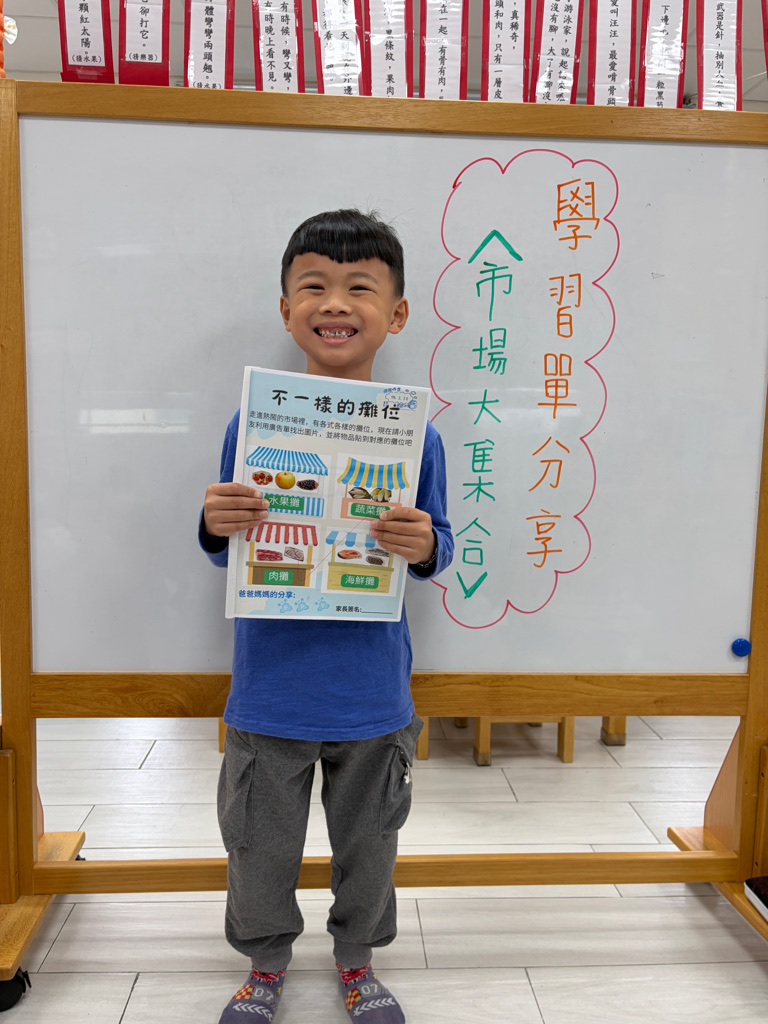 顆紅太陽。
(猜水果)
它卻打它。
(猜樂器)
體彎彎兩頭翹。
(猜水果)
有時候，彎又彎，
去時晚上看不見。
條紋，果肉
在一起，有骨有肉，
，真稀奇，
頭和肉，只有一層皮
游泳家，說起話來
愛叫汪汪，最愛啃骨頭
武器是針，抽別人
學習單分享
<市場大集合>
不一樣的攤位
走進熱鬧的市場裡，有各式各樣的攤位，現在請小朋
友利用廣告單找出圖片，並將物品貼到對應的攤位吧
水果攤
蔬菜攤
肉攤
海鮮攤
爸爸媽媽的分享:
家長簽名:________
07
07